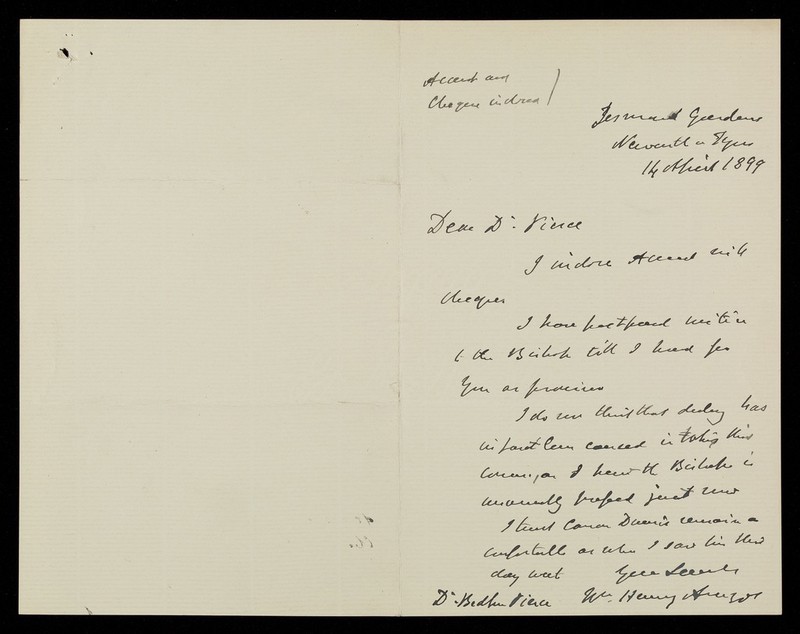 Account and
Cheque inclosed
Jesmond Gardens
Newcastle on Tyne
14 April 1899
Dear Dr. Pierce
I inclose Account with
cheques
I have postponed writing
to the Bishop till I heard from
You as promised
I do not think that delay has
in fact been caused in taking this
course, as I hear the Bishop is
unusually pressed just now
I trust Canon remains as
comfortable as when I saw him this
day week
Yours Sincerely
Dr. Bedford Pierce Wm. Henry Angus